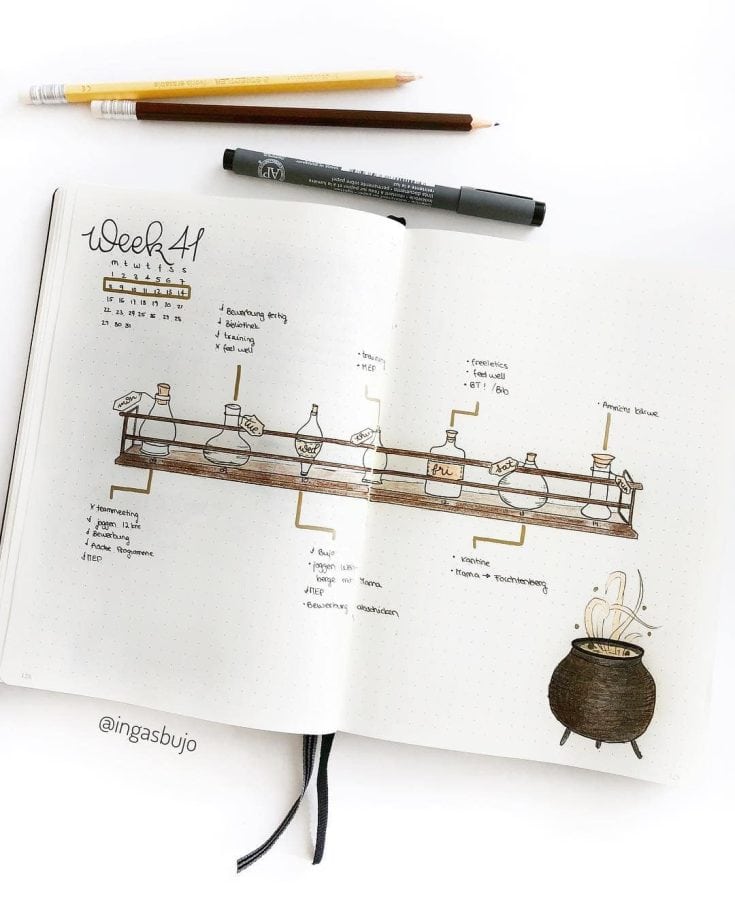 STAEDTLER
AP
Week 41
m t w t f s s
1 2 3 4 5 6 7
8 9 10 11 12 13 14
15 16 17 18 19 20 21
22 23 24 25 26 27 28
29 30 31
Bewerbung fertig
Bibliothek
training
x feel well
• training
• MEP
• freeletics
• feel well
• BT! / Bib
mon
tue
wed
thu
fri
sat
sun
8
9
10
11
12
13
14
x teammeeting
joggen 12 km
Bewerbung
Adobe Programme
MEP
Bujo
• joggen
berge mit Mama
MEP
• Bewerbung abschicken
• Kantine
• Mama → Forchtenberg
@ingasbujo